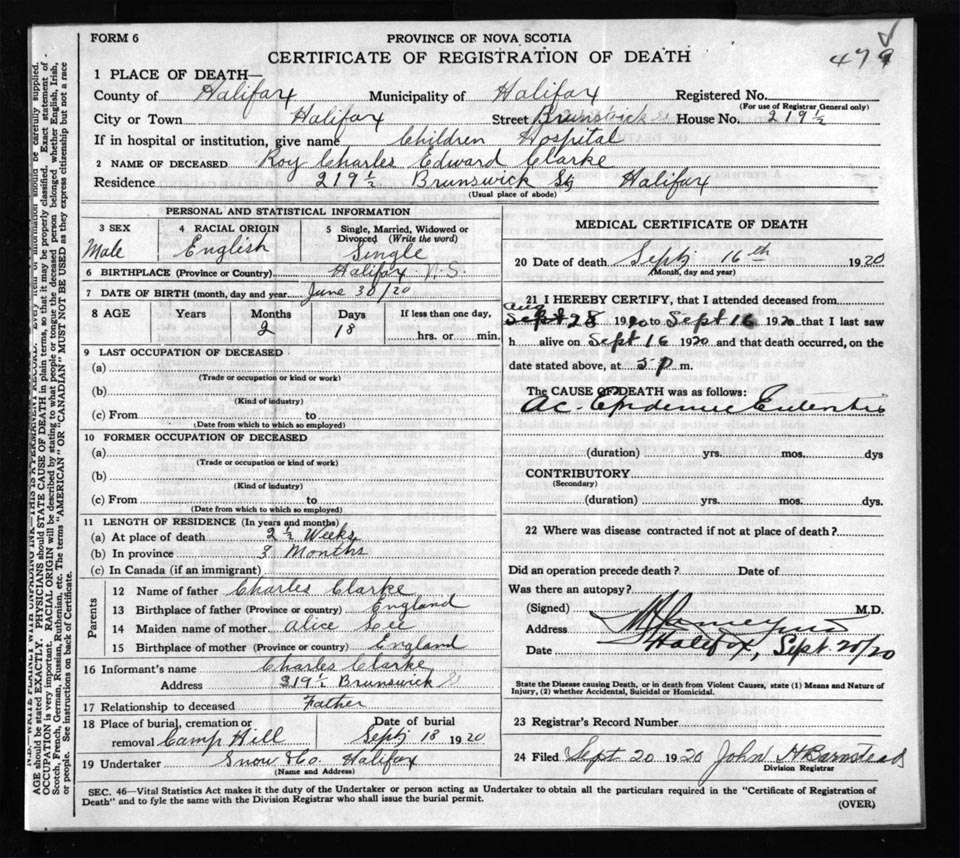 FORM 6
PROVINCE OF NOVA SCOTIA
CERTIFICATE OF REGISTRATION OF DEATH
479
1 PLACE OF DEATH—
County of Halifax Municipality of Halifax Registered No.
(For use of Registrar General only)
City or Town Halifax Street Brunswick St House No. 219½
If in hospital or institution, give name Children Hospital
2 NAME OF DECEASED Roy Charles Edward Clarke
Residence 219½ Brunswick St Halifax
(Usual place of abode)
PERSONAL AND STATISTICAL INFORMATION
3 SEX
Male
4 RACIAL ORIGIN
English
5 Single, Married, Widowed or
Divorced (Write the word)
Single
6 BIRTHPLACE (Province or Country) Halifax N.S.
7 DATE OF BIRTH (month, day and year) June 30/20
8 AGE Years Months Days If less than one day,
2 18 hrs. or min.
9 LAST OCCUPATION OF DECEASED
(a)
(Trade or occupation or kind or work)
(b)
(Kind of industry)
(c) From to
(Date from which to which so employed)
10 FORMER OCCUPATION OF DECEASED
(a)
(Trade or occupation or kind of work)
(b)
(Kind of industry)
(c) From to
(Date from which to which so employed)
11 LENGTH OF RESIDENCE (In years and months)
(a) At place of death 2½ Weeks
(b) In province 3 Months
(c) In Canada (if an immigrant)
Parents
12 Name of father Charles Clarke
13 Birthplace of father (Province or country) England
14 Maiden name of mother Alice
15 Birthplace of mother (Province or country) England
16 Informant's name Charles Clarke
Address 219½ Brunswick St
17 Relationship to deceased Father
18 Place of burial, cremation or
removal Camp Hill
Date of burial
Sept 18 1920
19 Undertaker Snow & Co. Halifax
(Name and Address)
MEDICAL CERTIFICATE OF DEATH
20 Date of death Sept 16th 1920
(Month, day and year)
21 I HEREBY CERTIFY, that I attended deceased from
Aug
Sept 28 1920 to Sept 16 1920 that I last saw
h alive on Sept 16 1920 and that death occurred, on the
date stated above, at 5 p m.
The CAUSE OF DEATH was as follows:
Ac. Epidemic
(duration) yrs. mos. dys
CONTRIBUTORY
(Secondary)
(duration) yrs. mos. dys.
22 Where was disease contracted if not at place of death?
Did an operation precede death? Date of
Was there an autopsy?
(Signed) M.D.
Address Halifax,
Date Sept 20/20
State the Disease causing Death, or in death from Violent Causes, state (1) Means and Nature of
Injury, (2) whether Accidental, Suicidal or Homicidal.
23 Registrar's Record Number
24 Filed Sept 20 1920 John H Barnstead
Division Registrar
SEC. 46—Vital Statistics Act makes it the duty of the Undertaker or person acting as Undertaker to obtain all the particulars required in the "Certificate of Registration of
Death" and to fyle the same with the Division Registrar who shall issue the burial permit.
(OVER)
AGE should be stated EXACTLY. PHYSICIANS should STATE CAUSE OF DEATH in plain terms, so that it may be properly classified. Exact statement of
OCCUPATION is very important. RACIAL ORIGIN will be described by stating to what people or tongue the deceased person belonged, whether English, Irish,
Scotch, French, German, Russian, Ruthenian, etc. The terms "AMERICAN" OR "CANADIAN" MUST NOT BE USED as they express citizenship but not a race
or people. See instructions on back of Certificate.